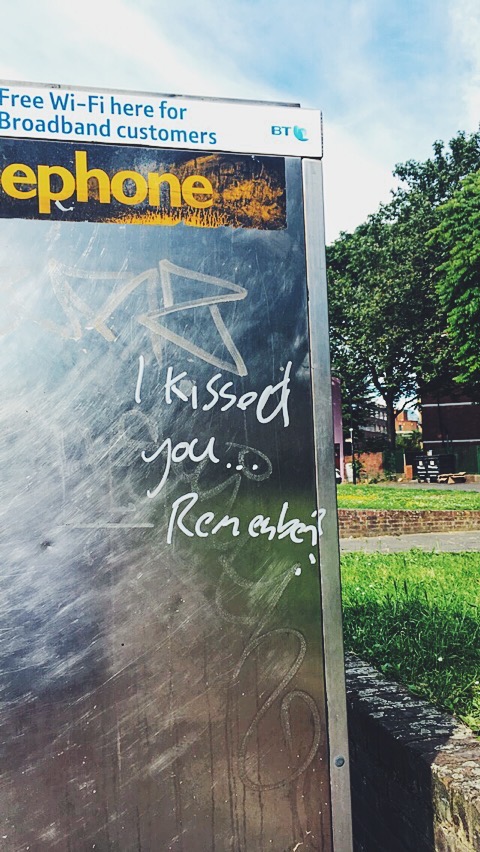 Free Wi-Fi here for
Broadband customers
BT
ephone
I kissed
you...
Remember?